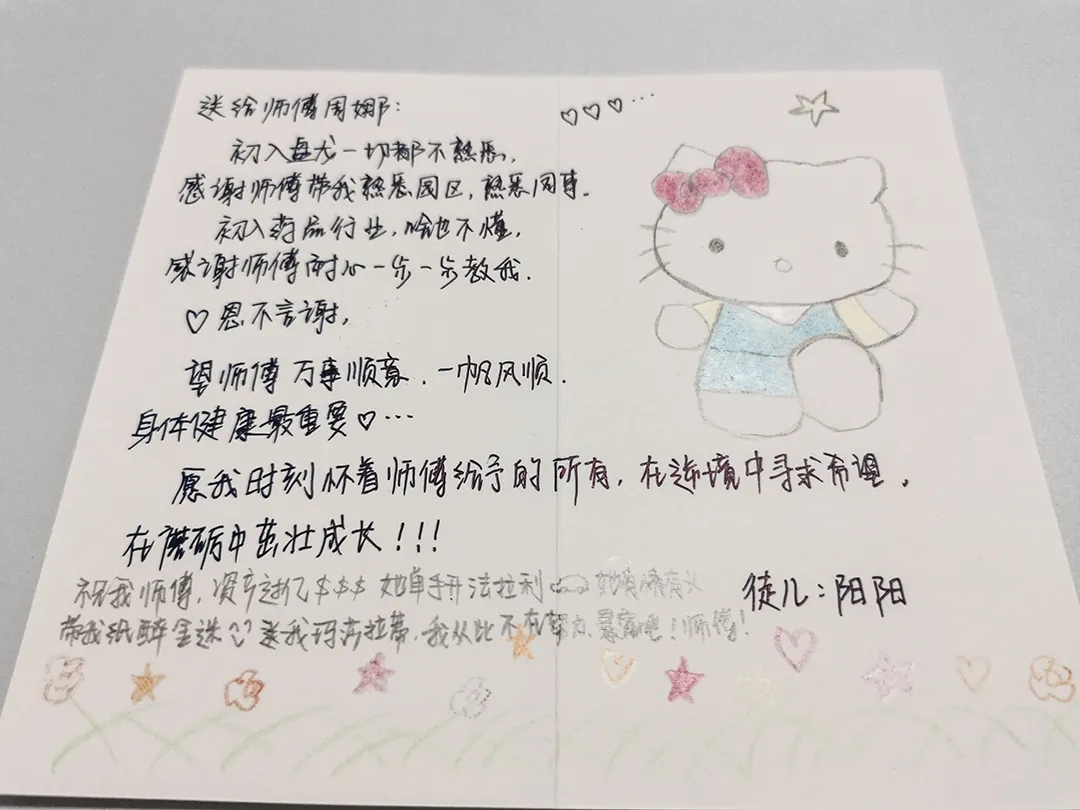 送给师傅周娜:
初入盘龙一切都不熟悉,
感谢师傅带我熟悉园区,熟悉同事.
初入药品行业,啥也不懂,
感谢师傅耐心一步一步教我.
♡恩不言谢,
望师傅万事顺意.一帆风顺.
身体健康最重要♡…
愿我时刻怀着师傅给予的所有,在逆境中寻求希望.
在磨砺中茁壮成长!!!
祝我师傅,资产过亿$$$ 她单手开法拉利 她有情有义
带我纸醉金迷 送我玛莎拉蒂,我从此不在努力.暴富吧!师傅!
徒儿:阳阳